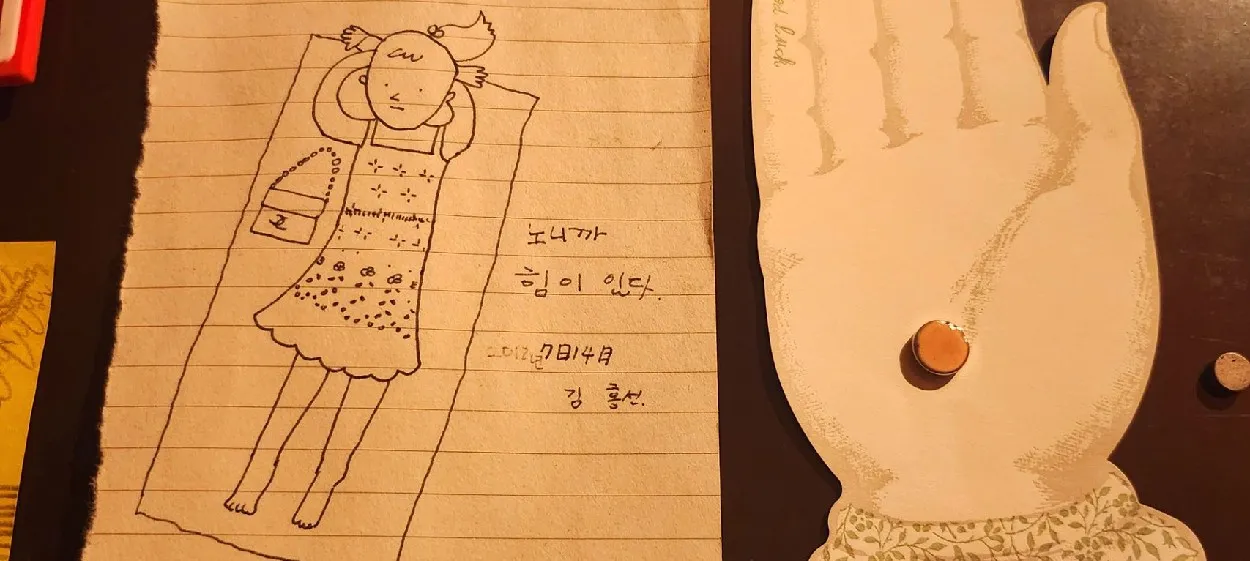 노니까
힘이 있다.
2012년 7日 14日
김 홍선.
luck